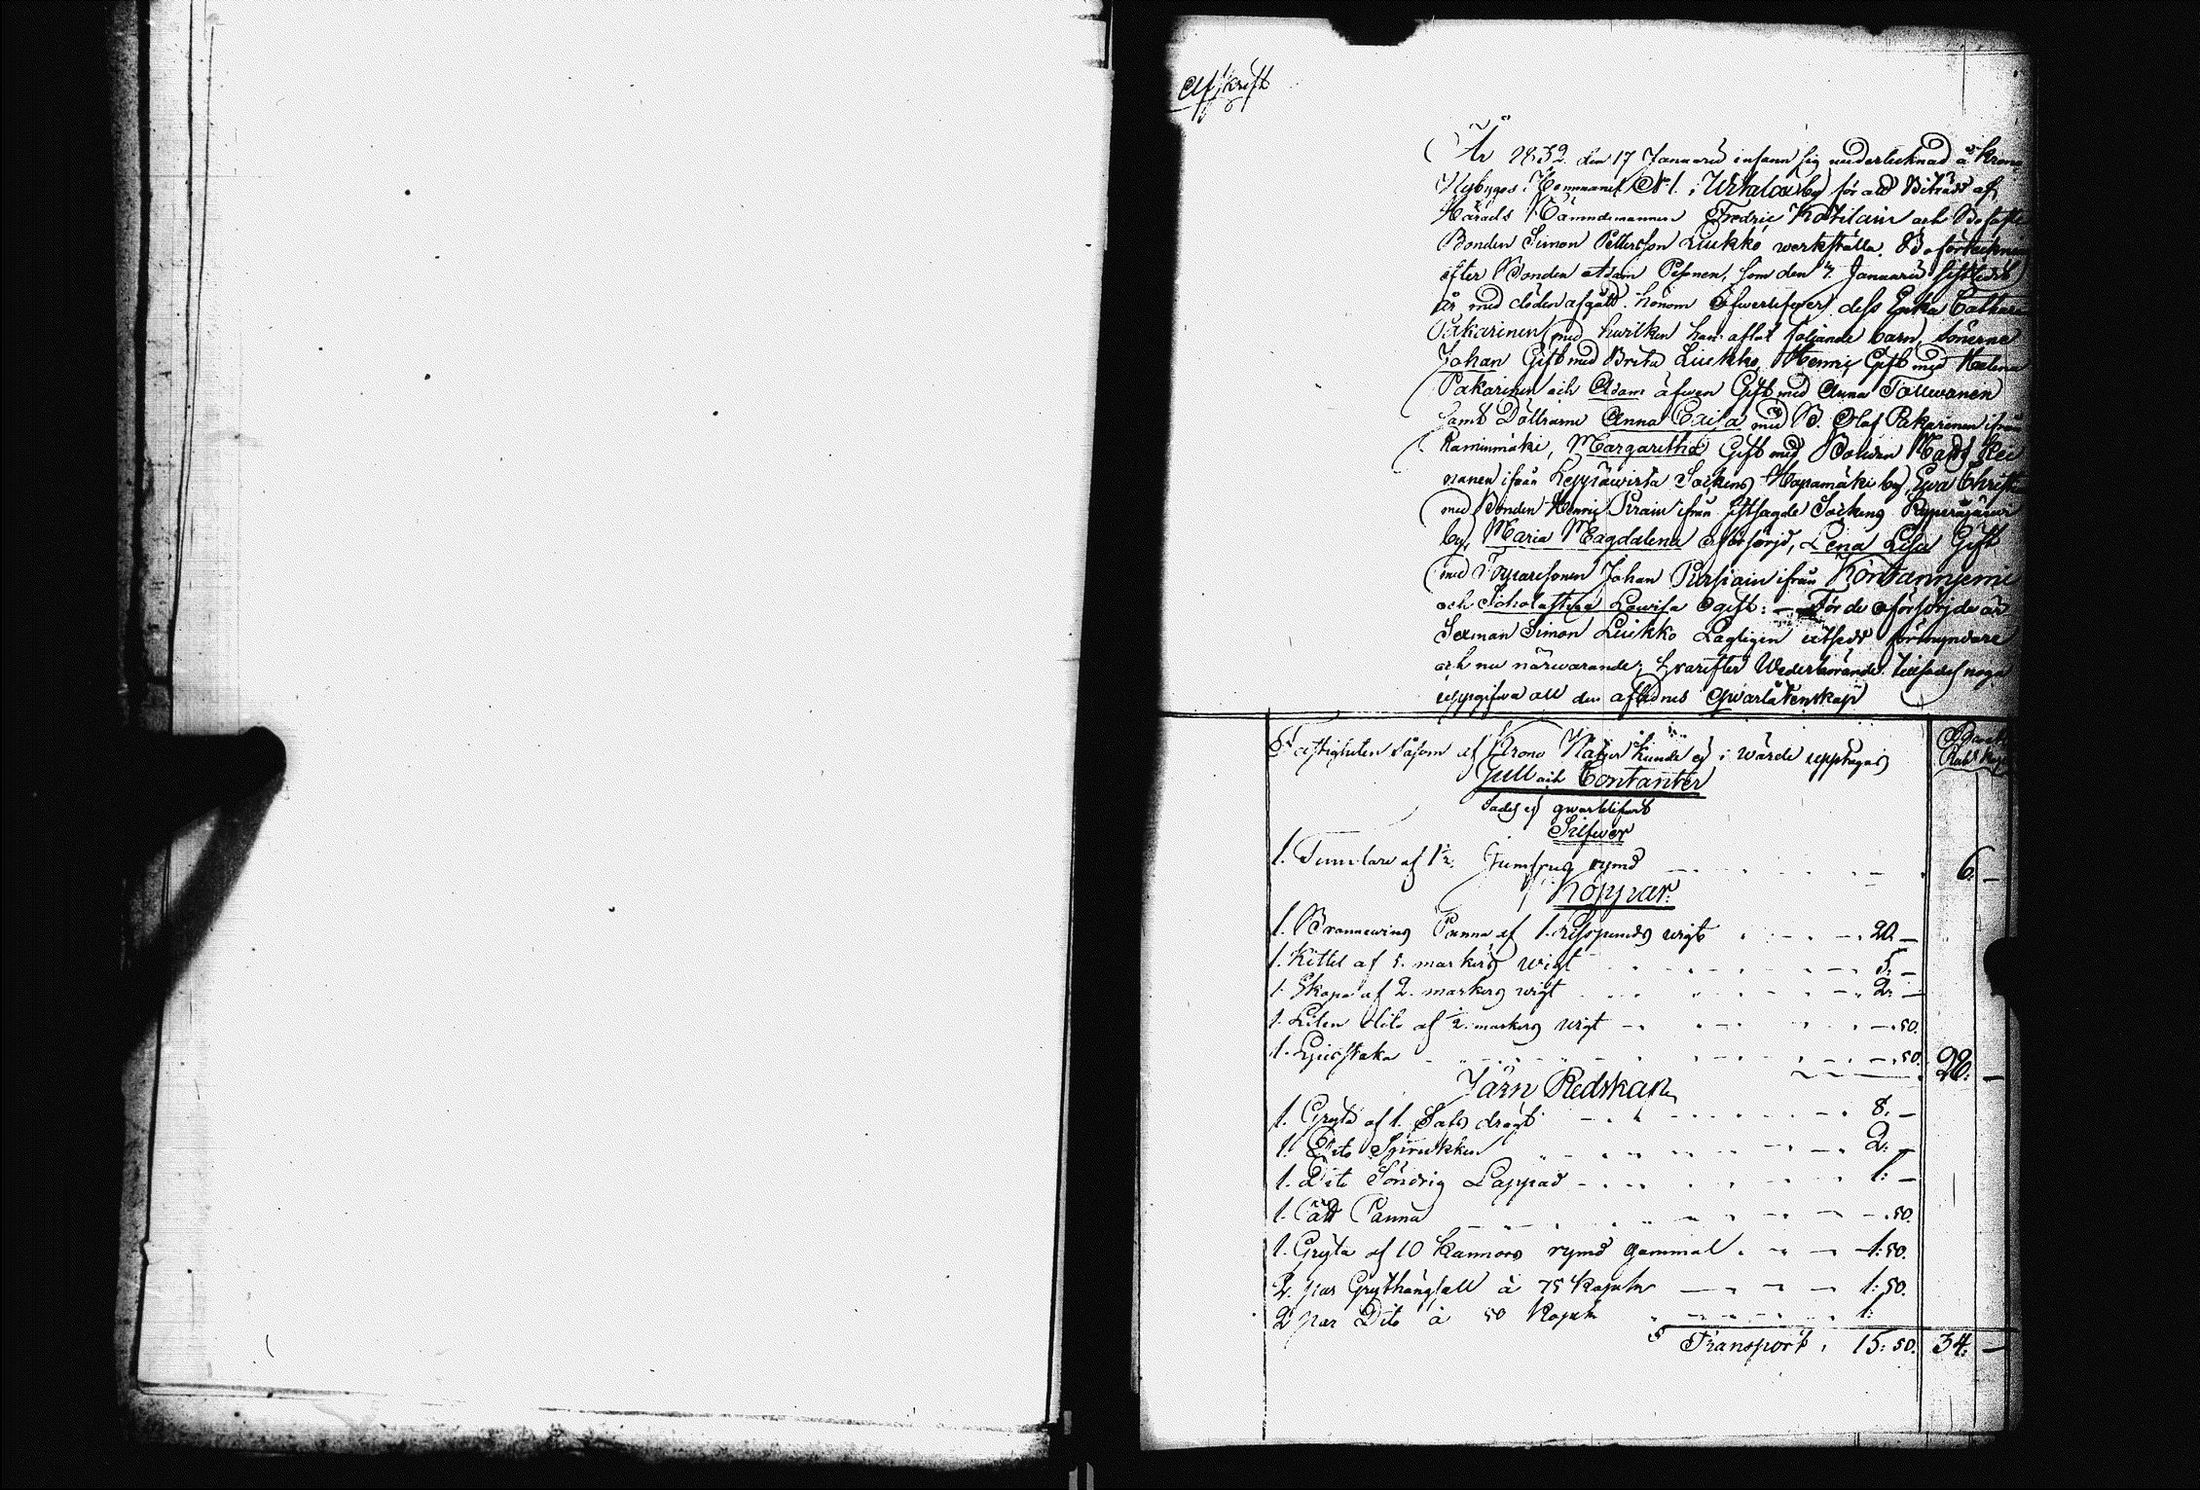 Afskrift
År 1832 den 17 Januarii infann sig undertecknad å Krono
Nybygges Hemmanet No 1. i Wihtalax by för att Biträdt af
Härads Nämndemannen Fredric Kotilain och Besutne
Bonden Simon Pettersson Liukko werkställa Boförteckning
efter Bonden Adam Pesonen, som den 7. Januarii sistledit
år med döden afgått. honom öfwerlefwer dess Enka Cathari
Pakarinen med hwilken han aflat följande barn, sönerne
Johan Gift med Brita Liukko, Henric Gift med Helena
Pakarinen och Adam äfwen Gift med Anna Tollwanen
samt Döttrarne Anna Caisa med B. Olof Pakarinen ifrån
Raminmäki, Margaretha Gift med Bonden Mats Kei
nanen ifrån Leppäwirta Sockens Hapamäki by, Ewa Christi
med Bonden Henric Pirain ifrån sistsagde Sockens
by, Maria Magdalena oförsörjd, Lena Lisa Gift
med Torparesonen Johan Pursiain ifrån Kontanniemi
och Scholastica Lowisa ogift: — För de oförsörjda är
Sexman Simon Liukko Lagligen utsedd förmyndare
och nu närwarande; hwarefter Wederbörande tillsades noga
uppgifwa all den aflednes Qwarlåtenskap
Fastigheten såsom af Krono Natur kunde ej i wärde upptagas
Banco
Rub. Kop.
Gull och Contanter
sades ej qwarblifwit
Silfwer
1. Tumlare af 1½ Jumfrus rymd 6. —
Koppar.
1. Brännewins Panna af 1. Lispunds wigt 20. —
1. Kittel af 5. markers wigt 5. —
1. Skopa af 2. markers wigt 2. —
1. Liten dito af ½. markers wigt — . 50.
1. Ljusstaka — . 50. 28. —
Järn Redskap
1. Gryta af 1. Såts drägt 8. —
1. Dito Sprukken 2. —
1. Dito Söndrig Lappad 1: —
1. Pannа — . 50.
1. Gryta af 10 Kannors rymd gammal 1: 50.
2. par Grythängsall à 75 Kopek 1: 50.
2 par Dito à 50 Kopek 1:
Transport, 15: 50. 34: —